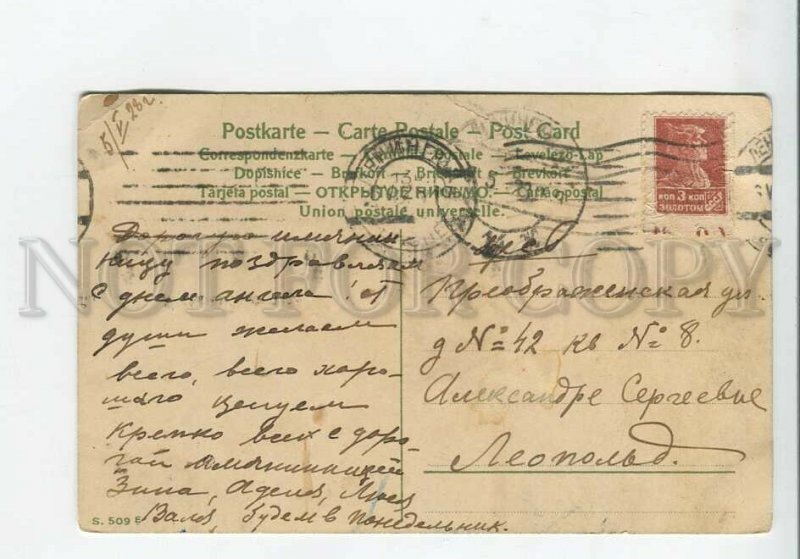 5/V 28 г.
Postkarte – Carte Postale – Post Card
Correspondenzkarte – Postale – Levelező-Lap
Dopisnice – Briefkort – Brevkort
Tarjeta postal – ОТКРЫТОЕ ПИСЬМО – postal
Union postale universelle.
КОП 3 КОП
ЗОЛОТОМ
Дорогую имянин
ницу поздравляем
с днем ангела! От
души желаем
всего, всего хоро-
шаго целуем
крепко всех с доро-
гой имянинницей
Зина, Аделя, Люся
Валя, будем в понедельник.
Преображенская ул.
д № 42 кв № 8.
Александре Сергеевне
Леопольд.
S. 509 E
NOT FOR COPY